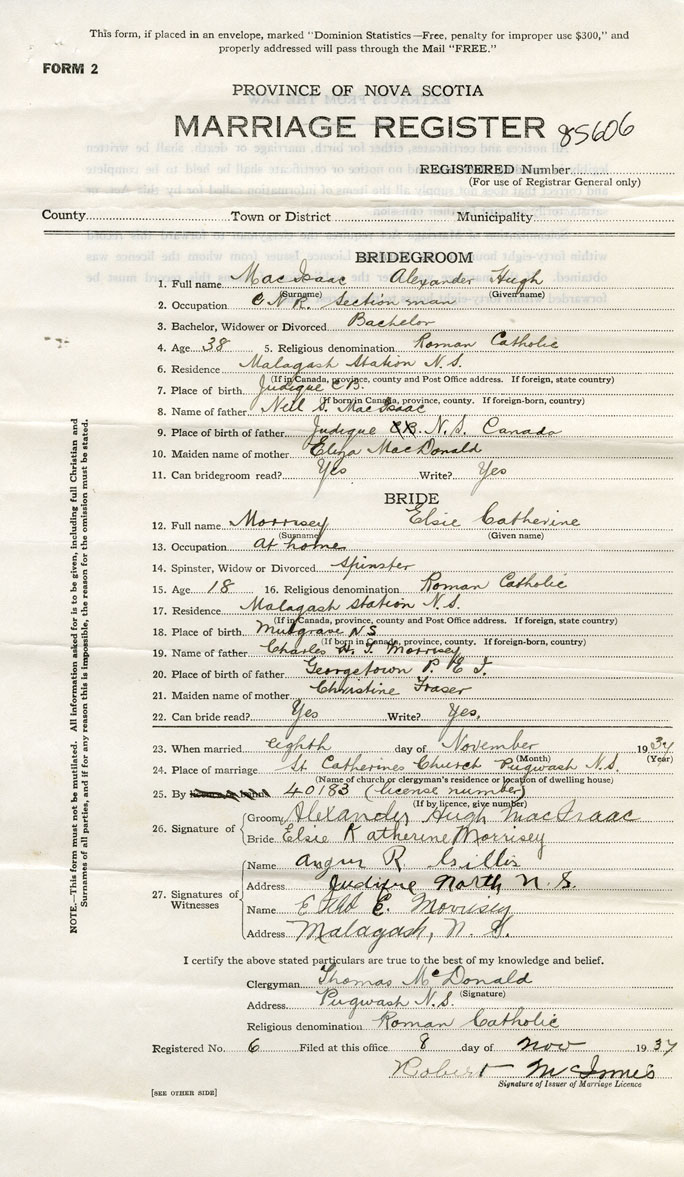 This form, if placed in an envelope, marked "Dominion Statistics—Free, penalty for improper use $300," and
properly addressed will pass through the Mail "FREE."
FORM 2
PROVINCE OF NOVA SCOTIA
MARRIAGE REGISTER 85606
REGISTERED Number
(For use of Registrar General only)
County Town or District Municipality
BRIDEGROOM
1. Full name MacIsaac Alexander Hugh
(Surname) (Given name)
2. Occupation C N R. Section man
3. Bachelor, Widower or Divorced Bachelor
4. Age 38 5. Religious denomination Roman Catholic
6. Residence Malagash Station N.S.
(If in Canada, province, county and Post Office address. If foreign, state country)
7. Place of birth Judique C B.
(If born in Canada, province, county. If foreign-born, country)
8. Name of father Neil S. MacIsaac
9. Place of birth of father Judique N.S. Canada
10. Maiden name of mother Eliza MacDonald
11. Can bridegroom read? Yes Write? Yes
BRIDE
12. Full name Morrisey Elsie Catherine
(Surname) (Given name)
13. Occupation At home
14. Spinster, Widow or Divorced Spinster
15. Age 18 16. Religious denomination Roman Catholic
17. Residence Malagash Station N.S.
(If in Canada, province, county and Post Office address. If foreign, state country)
18. Place of birth Mulgrave N S
(If born in Canada, province, county. If foreign-born, country)
19. Name of father Charles Morrisey
20. Place of birth of father Georgetown P. E I.
21. Maiden name of mother Christine Fraser
22. Can bride read? Yes Write? Yes,
23. When married eighth day of November 19
(Month) (Year)
24. Place of marriage St Catherines Church Pugwash N.S.
(Name of church or clergyman's residence or location of dwelling house)
25. By 40183 (license number)
(If by licence, give number)
26. Signature of
Groom Alexander Hugh MacIsaac
Bride Elsie Katherine Morrisey
27. Signatures of Witnesses
Name Angus R. Gillis
Address Judique North N. S.
Name E. Morrisey
Address Malagash, N. S.
I certify the above stated particulars are true to the best of my knowledge and belief.
Clergyman Thomas McDonald
(Signature)
Address Pugwash N.S.
Religious denomination Roman Catholic
Registered No. 6 Filed at this office 8 day of Nov 1937
Robert McInnes
Signature of Issuer of Marriage Licence
[SEE OTHER SIDE]
NOTE.—This form must not be mutilated. All information asked for is to be given, including full Christian and
Surnames of all parties, and if for any reason this is impossible, the reason for the omission must be stated.